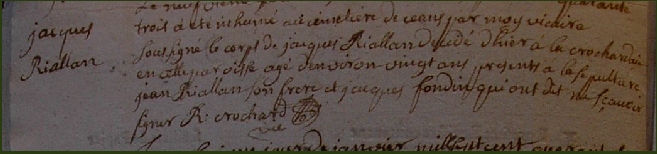 jacques
Riallan
trois a été inhumé au cimetiere de ceans par moy vicaire
soussigné le corps de jacques Riallan decedé d'hier à la crochardais
en cette paroisse agé d'environ vingt ans presents a la sepulture
jean Riallan son frere et jacques fondin qui ont dit ne sçavoir
signer R. crochard
vic
jour de janvier mil sept cent quarante